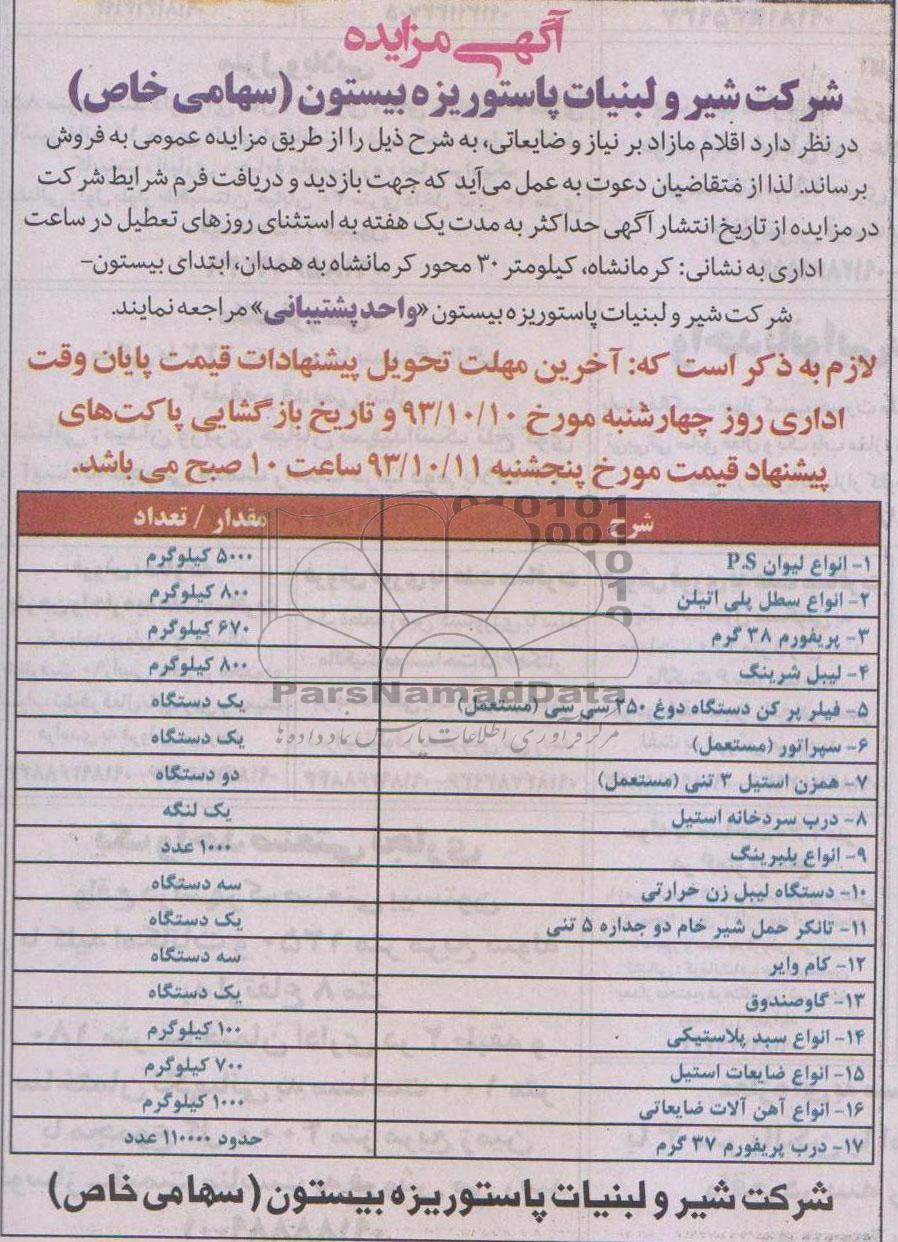 آگهی مزایده
شرکت شیر و لبنیات پاستوریزه بیستون (سهامی خاص)
در نظر دارد اقلام مازاد بر نیاز و ضایعاتی، به شرح ذیل را از طریق مزایده عمومی به فروش
برساند. لذا از متقاضیان دعوت به عمل می‌آید که جهت بازدید و دریافت فرم شرایط شرکت
در مزایده از تاریخ انتشار آگهی حداکثر به مدت یک هفته به استثنای روزهای تعطیل در ساعت
اداری به نشانی: کرمانشاه، کیلومتر ۳۰ محور کرمانشاه به همدان، ابتدای بیستون-
شرکت شیر و لبنیات پاستوریزه بیستون «واحد پشتیبانی» مراجعه نمایند.
لازم به ذکر است که: آخرین مهلت تحویل پیشنهادات قیمت پایان وقت
اداری روز چهارشنبه مورخ ۹۳/۱۰/۱۰ و تاریخ بازگشایی پاکت‌های
پیشنهاد قیمت مورخ پنجشنبه ۹۳/۱۰/۱۱ ساعت ۱۰ صبح می باشد.
شرح مقدار / تعداد
۱- انواع لیوان P.S ۵۰۰۰ کیلوگرم
۲- انواع سطل پلی اتیلن ۸۰۰ کیلوگرم
۳- پریفورم ۳۸ گرم ۶۷۰ کیلوگرم
۴- لیبل شرینگ ۸۰۰ کیلوگرم
۵- فیلر پر کن دستگاه دوغ ۲۵۰ سی سی (مستعمل) یک دستگاه
۶- سپراتور (مستعمل) یک دستگاه
۷- همزن استیل ۳ تنی (مستعمل) دو دستگاه
۸- درب سردخانه استیل یک لنگه
۹- انواع بلبرینگ ۱۰۰۰ عدد
۱۰- دستگاه لیبل زن حرارتی سه دستگاه
۱۱- تانکر حمل شیر خام دو جداره ۵ تنی یک دستگاه
۱۲- کام وایر سه دستگاه
۱۳- گاوصندوق یک دستگاه
۱۴- انواع سبد پلاستیکی ۱۰۰ کیلوگرم
۱۵- انواع ضایعات استیل ۷۰۰ کیلوگرم
۱۶- انواع آهن آلات ضایعاتی ۱۰۰۰ کیلوگرم
۱۷- درب پریفورم ۳۷ گرم حدود ۱۱۰۰۰۰ عدد
شرکت شیر و لبنیات پاستوریزه بیستون (سهامی خاص)
ParsNamadData
مرکز فرآوری اطلاعات پارس نماد داده ها